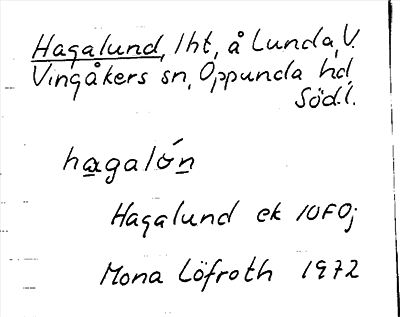 Hagalund, lht, å Lunda, V.
Vingåkers sn, Oppunda hd
Södl.
hagalón
Hagalund ek 10F0j
Mona Löfroth 1972